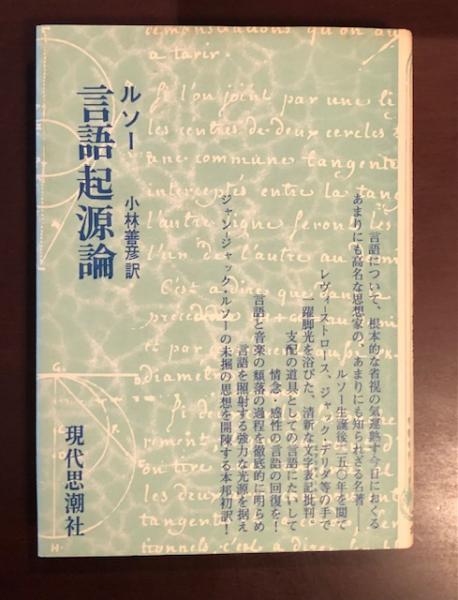 ルソー
言語起源論
小林善彦訳
現代思潮社
言語について、根本的な省視の気運熟す今日におくる
あまりにも高名な思想家の、あまりにも知られざる名著——
ルソー生誕後二五〇年を閲て
レヴィ=ストロース、ジャック・デリダ等の手で
一躍脚光を浴びた、清新な文字表記批判。
支配の道具としての言語にたいして
情念・感性の言語の回復を!
言語と音楽の頽落の過程を徹底的に明らめ
言語を照射する強力な光源を据え
ジャン・ジャック・ルソーの未掘の思想を開陳する本邦初訳!
a tarir.
Si l'on joint par une li
les centres de deux cercles
une commune tangente
interceptés entre la tang
l'autre ligne seront
l'un de l'autre au
C'est a dire que
tangente
les deux